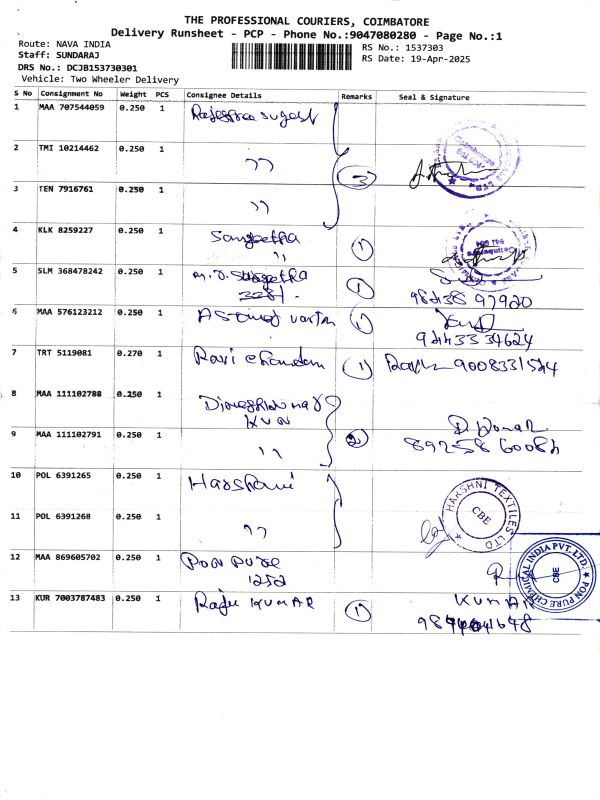 THE PROFESSIONAL COURIERS, COIMBATORE
Delivery Runsheet - PCP - Phone No.:9047080280 - Page No.:1
Route: NAVA INDIA
RS No.: 1537303
Staff: SUNDARAJ
RS Date: 19-Apr-2025
DRS No.: DCJB153730301
Vehicle: Two Wheeler Delivery
S No Consignment No Weight PCS Consignee Details Remarks Seal & Signature
1 MAA 707544059 0.250 1
2 TMI 10214462 0.250 1 " 3
3 TEN 7916761 0.250 1 "
4 KLK 8259227 0.250 1 Sangeetha 1
"
5 SLM 368478242 0.250 1 Sangeetha 1
6 MAA 576123212 0.250 1 1
7 TRT 5119081 0.270 1 Ravi 1 9008331524
8 MAA 111102788 0.250 1
9 MAA 111102791 0.250 1 " 2
10 POL 6391265 0.250 1 Harshani
HARSHNI TEXTILES LTD
CBE
11 POL 6391268 0.250 1 "
12 MAA 869605702 0.250 1 PON PURE
1252
PON PURE CHEMICAL INDIA PVT. LTD.
CBE
13 KUR 7003787483 0.250 1 Raju KUMAR 1 KUMAR